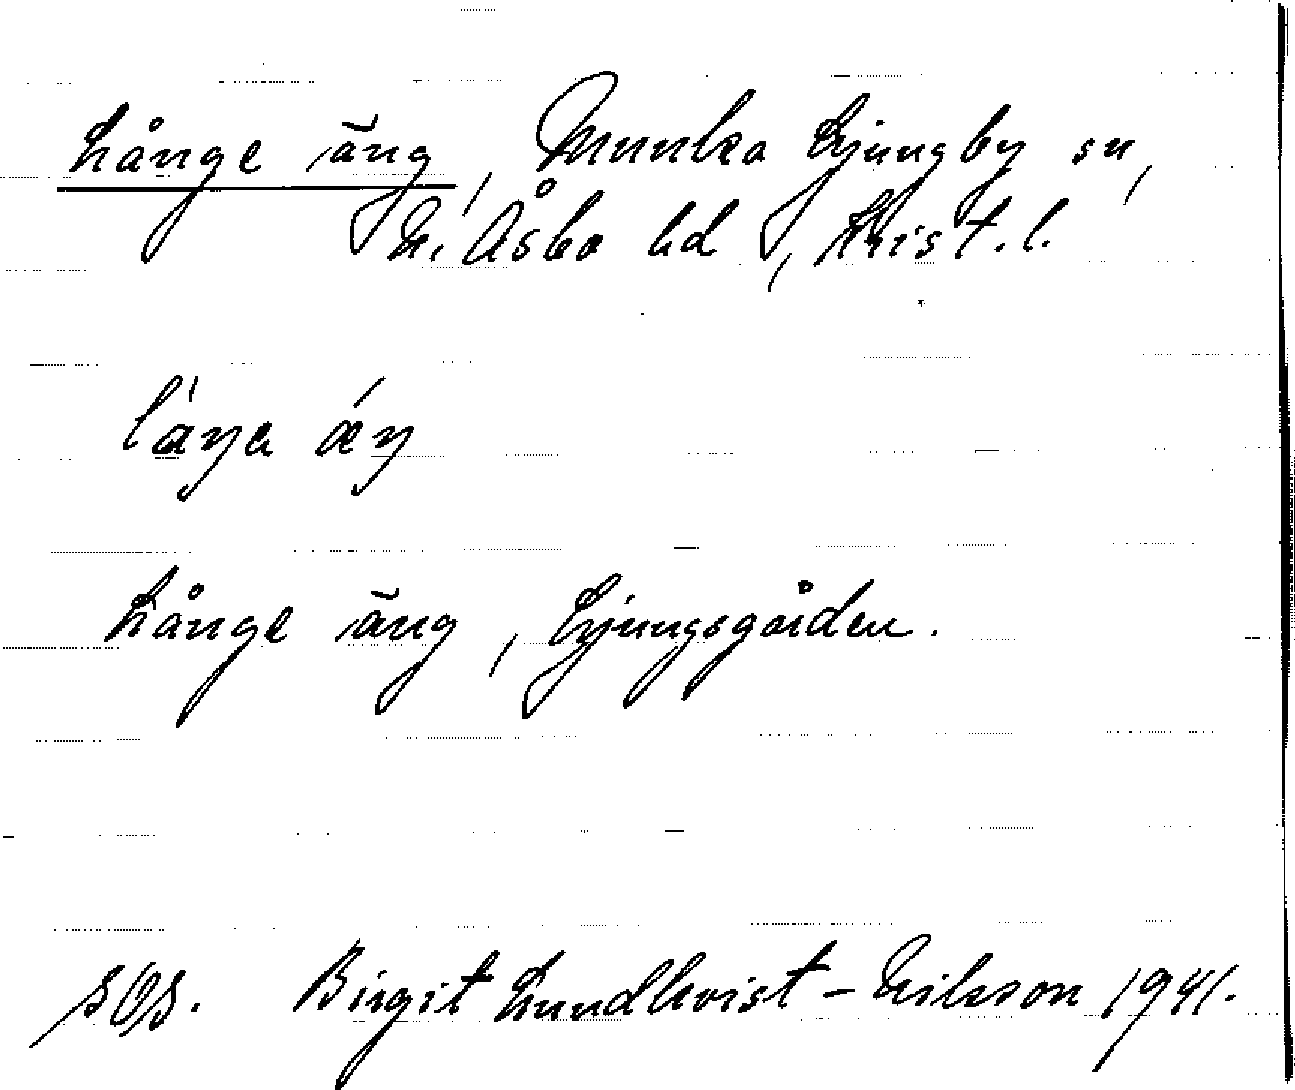 Långe äng, Munka Ljungby sn,
N. Åsbo hd, Krist. l.
Långe äng, Ljungsgården.
SOS. Birgit Lundkvist-Nilsson 1941.